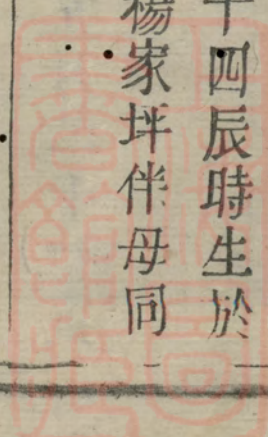 十四辰時生於
楊家坪伴母同